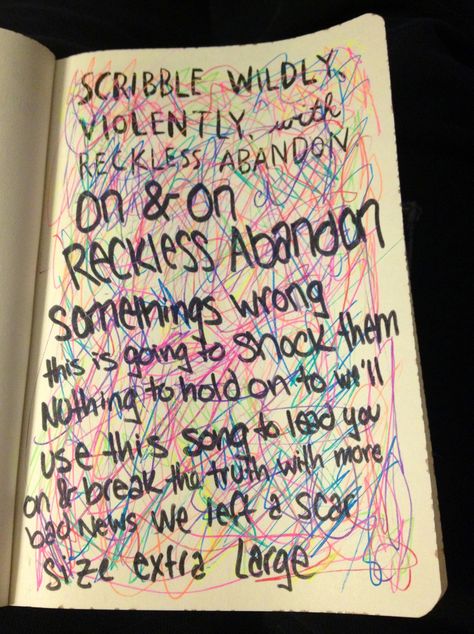 SCRIBBLE WILDLY,
VIOLENTLY, with
RECKLESS ABANDON.
On & On
RECKLESS Abandon
somethings wrong
this is going to shock them
Nothing to hold on to we'll
use this song to lead you
on & break the truth with more
bad News we left a scar
Size extra large